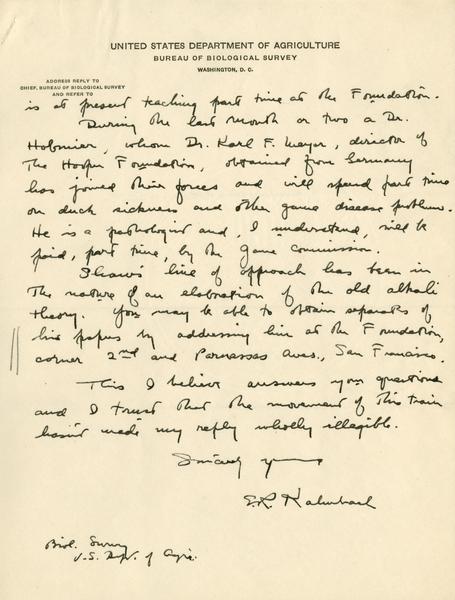 UNITED STATES DEPARTMENT OF AGRICULTURE
BUREAU OF BIOLOGICAL SURVEY
WASHINGTON, D. C.
ADDRESS REPLY TO
CHIEF, BUREAU OF BIOLOGICAL SURVEY
AND REFER TO
is at present teaching part time at the Foundation.
During the last month or two a Dr.
, whom Dr. Karl F. Meyer, director of
The Hooper Foundation, obtained from Germany
has joined their forces and will spend part time
on duck sickness and other game disease problems.
He is a pathologist and, I understand, will be
paid, part time, by the Game Commission.
Shaw's line of approach has been in
the nature of an elaboration of the old alkali
theory. You may be able to obtain separates of
his papers by addressing him at the Foundation,
corner 2nd and Parnassas Aves., San Francisco.
This I believe answers your questions
and I trust that the movement of this train
hasn't made my reply wholly illegible.
Sincerely yours
E.R. Kalmbach
Biol. Survey
U.S. Dept. of Agric.